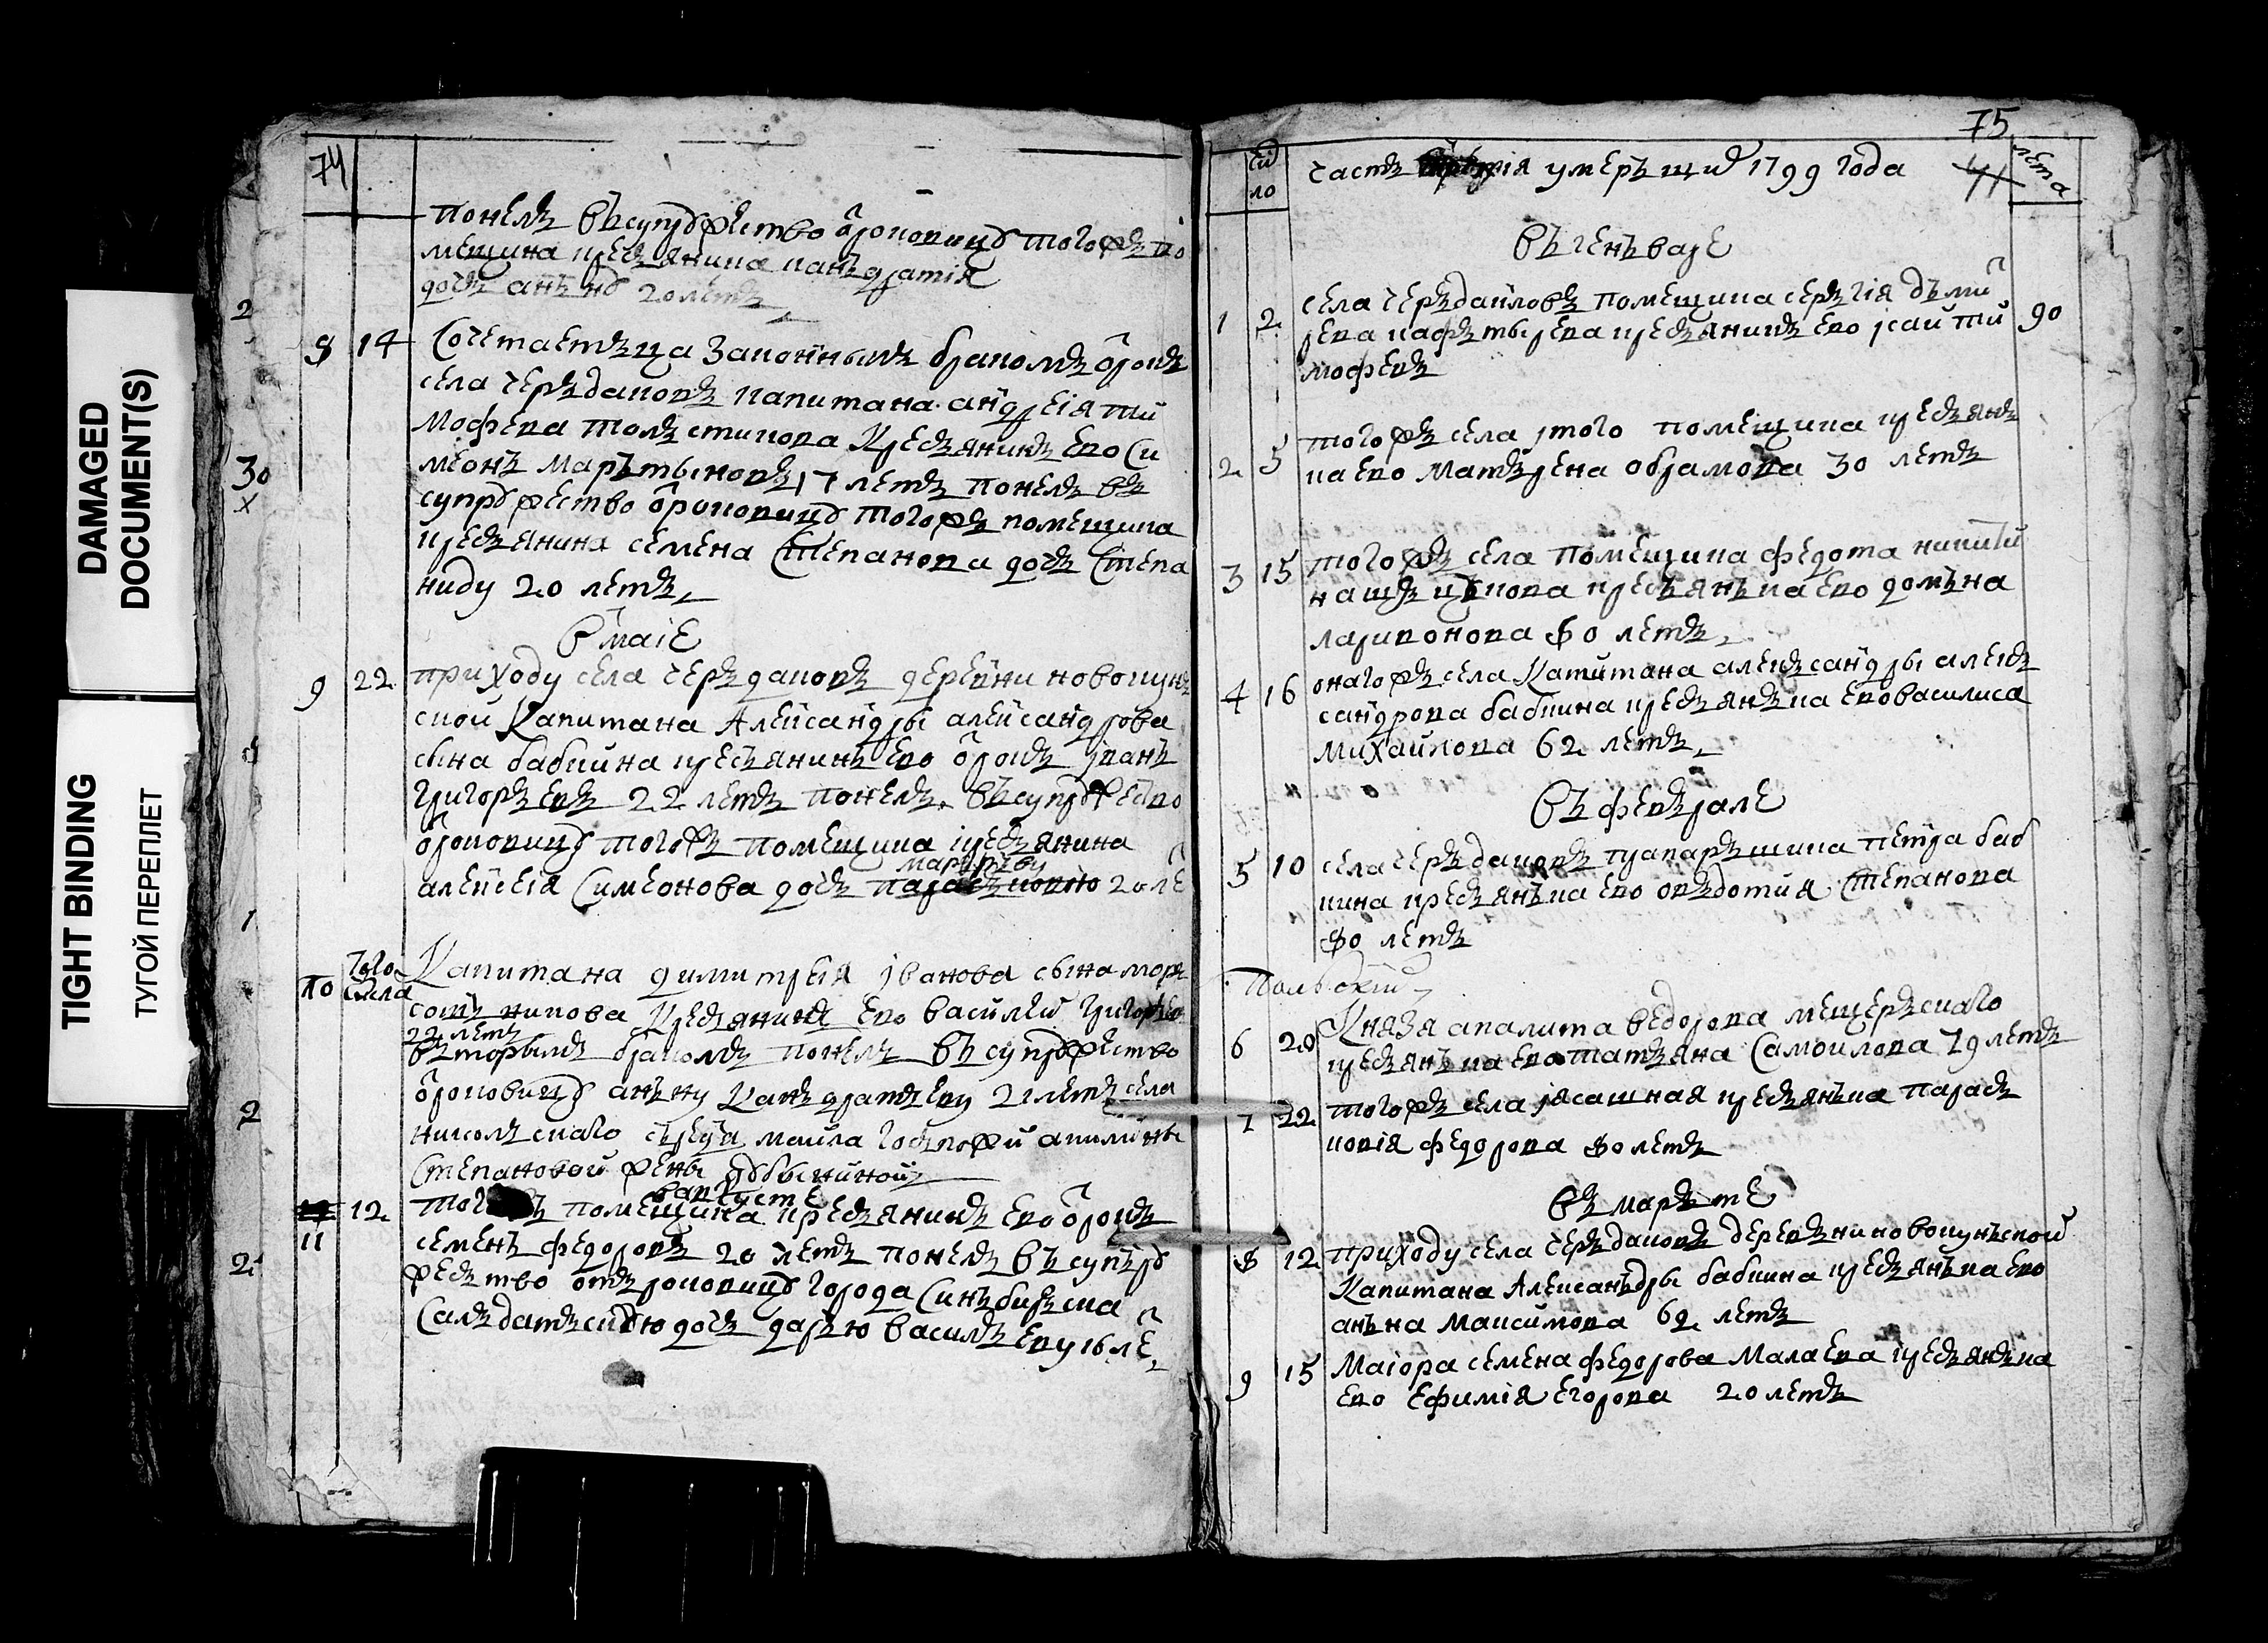 DAMAGED
DOCUMENT(S)
TIGHT BINDING
ТУГОЙ ПЕРЕПЛЕТ
74
понелъ въ супружество отроковицу тогожъ по
мещика крестьянина канъдратия
дочь анъну 20 летъ
8 14 Сочетаетъца законънымъ бракомъ отрокъ
села черъдаковъ капитана андреiя ти
мофеева толъстикова крестьянинъ ево Си
меонъ марътыновъ 17 летъ понелъ въ
супружество отроковицу тогожъ помещика
крестьянина семена Степанова дочь Степа
ниду 20 летъ
в маiе
9 22 приходу села черъдаковъ деревни новокунъ
ской капитана Александры александрова
сына бабкина крестьянинъ ево отрокъ iванъ
григорьевъ 22 летъ понелъ въ супружество
отроковицу тогожъ помещика крестьянина
маръфу
алексеiя Симеонова дочь 20 ле
10 Того села Капитана димитреiя iванова сына
крестьянинъ ево василей григорьев
22 летъ
въторымъ бракомъ понелъ въ супружество
отроковицу анъну канъдратьеву 21 летъ села
никольскаго
Степановой жены
в августе
11 12 помещика крестьянинъ ево отрокъ
семенъ федоровъ 20 летъ понелъ въ супъру
жество отъроковицу города Синъбирска
Салъдатъскую дочь дарью васильеву 16 ле
75
41
чи
сло
часть умеръших 1799 года
лета
въ генъваре
1 2 села черъдаковъ помещика серъгiя дъми
треева крестьянинъ ево iсай ти
мофеевъ
90
2 5 тогожъ села iтого помещика крестьянъ
ка ево матърена абрамова 30 летъ
3 15 тогожъ села помещика федота никити
крестьянъка ево домъна
ларивонова 80 летъ
4 16 онагожъ села Капитана александры алек
сандрова бабкина крестьянъка ево василиса
михайлова 62 летъ
въ феврале
5 10 села черъдаковъ прапаръщика петра баб
кина крестьянъка ево овъдотия Степанова
80 летъ
Польский
6 20 Князя апалита ведорова мещеръскаго
крестьянъка ево татьяна Самоилова 79 летъ
7 22 тогожъ села iясашная крестьянъка парась
ковiя федорова 80 летъ
въ маръте
8 12 приходу села черъдаковъ деревни новокунъской
Капитана Александры бабкина крестьянъка ево
анъна максимова 62 летъ
9 15 Маiора семена федорова Малаева крестьянъка
ево ефимiя егорова 20 летъ